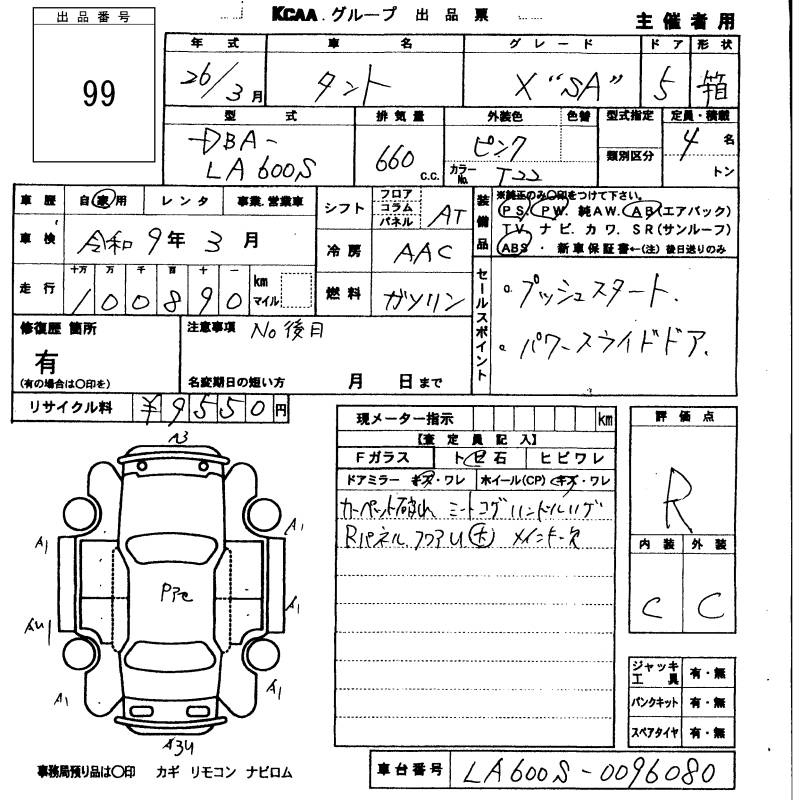 KCAA グループ 出品票
主催者用
出品番号
99
年式 車名 グレード ドア 形状
26/3月 タント X "SA" 5 箱
型式 排気量 外装色 色替 型式指定 定員・積載
DBA-
LA600S
660 c.c.
ピンク
カラーNo. T22
類別区分
4名
トン
車歴 自家用 レンタ 事業.営業車
シフト フロア コラム パネル AT
装備品
※純正のみ〇印をつけて下さい。
PS. PW. 純AW. AB(エアバック)
TV. ナビ. カワ. SR(サンルーフ)
ABS・新車保証書←(注)後日送りのみ
車検 令和 9年 3月
冷房 AAC
走行 十万 万 千 百 十 一
100890 km マイル
燃料 ガソリン
セールスポイント
。プッシュスタート.
。パワースライドドア.
修復歴 箇所
有
(有の場合は〇印を)
注意事項 No後日
名変期日の短い方 月 日まで
リサイクル料 ¥9550円
現メーター指示 km
【査定員記入】
Fガラス トビ石 ヒビワレ
ドアミラー キズ・ワレ ホイール(CP) キズ・ワレ
カーペット破れ シートコゲ ハンドルハゲ
Rパネル. フロアU 大 メインキー欠
評価点
R
内装 外装
C C
ジャッキ工具 有・無
パンクキット 有・無
スペアタイヤ 有・無
A1
A1
A1
AU1
A1
A1
A3U
事務局預り品は〇印 カギ リモコン ナビロム
車台番号 LA600S-0096080